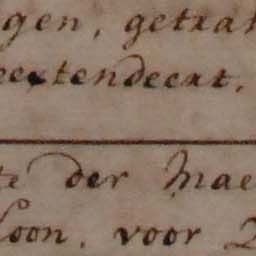 gen, getrac
peextendeert,
te der Mae
loon, voor 2